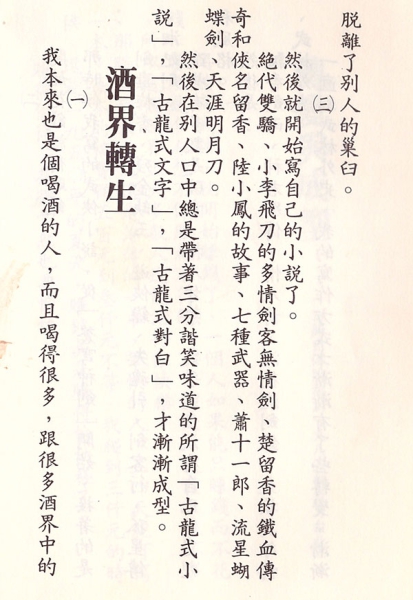 脫離了別人的巢臼。
㈢
然後就開始寫自己的小說了。
絕代雙驕、小李飛刀的多情劍客無情劍、楚留香的鐵血傳
奇和俠名留香、陸小鳳的故事、七種武器、蕭十一郎、流星蝴
蝶劍、天涯明月刀。
然後在別人口中總是帶著三分諧笑味道的所謂「古龍式小
說」，「古龍式文字」，「古龍式對白」，才漸漸成型。
酒界轉生
㈠
我本來也是個喝酒的人，而且喝得很多，跟很多酒界中的